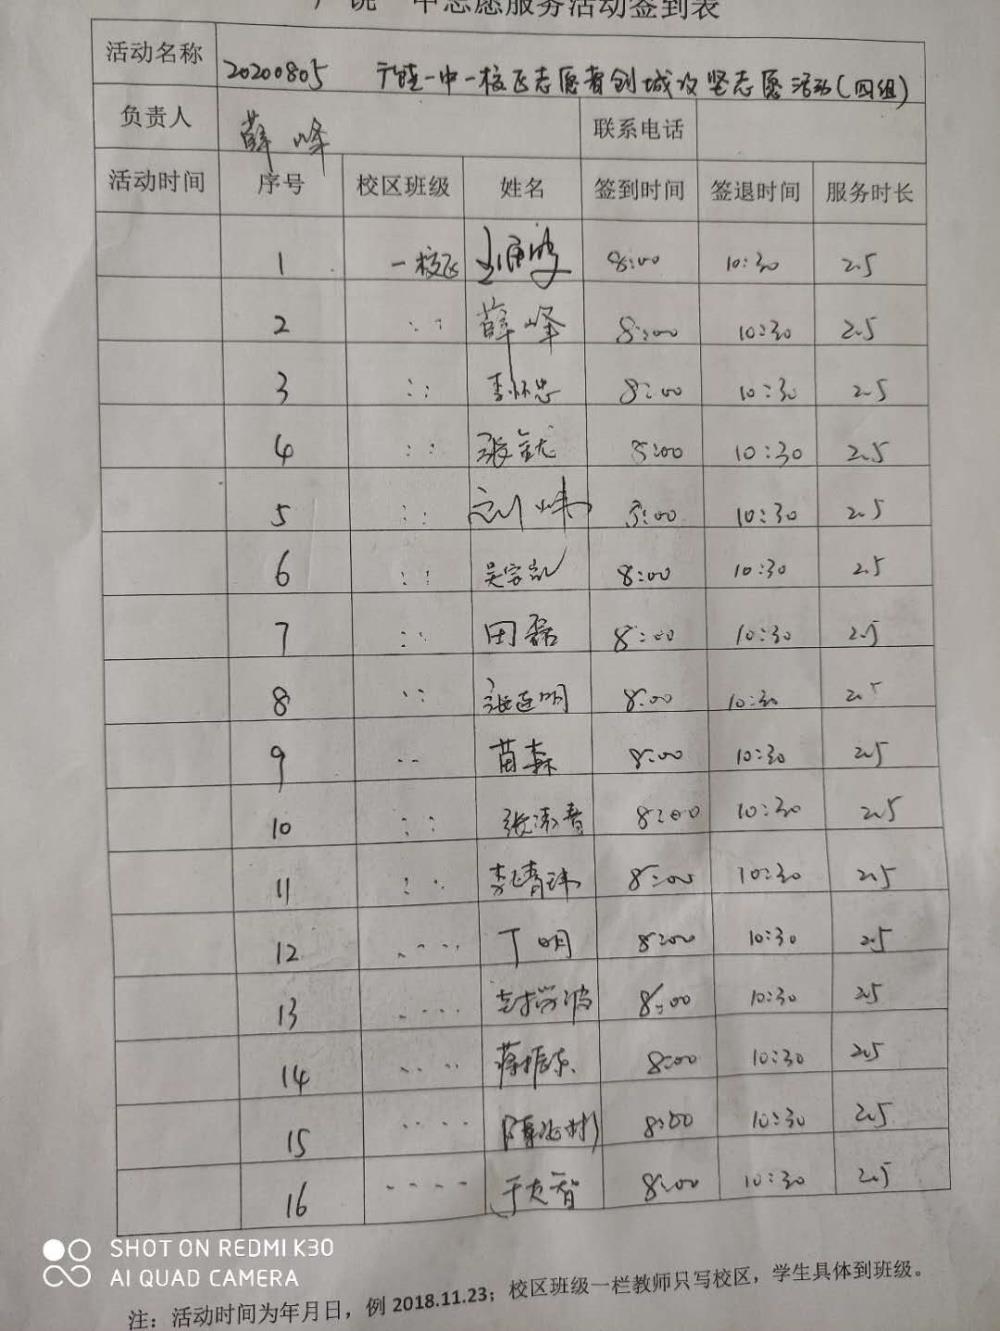 广饶一中志愿服务活动签到表
活动名称 20200805 广饶一中一校区志愿者创城攻坚志愿活动(四组)
负责人 薛峰 联系电话
活动时间 序号 校区班级 姓名 签到时间 签退时间 服务时长
1 一校区 8:00 10:30 2.5
2 〃 薛峰 8:00 10:30 2.5
3 〃 李怀忠 8:00 10:30 2.5
4 〃 8:00 10:30 2.5
5 〃 刘炜 8:00 10:30 2.5
6 〃 8:00 10:30 2.5
7 〃 田磊 8:00 10:30 2.5
8 〃 张连明 8:00 10:30 2.5
9 〃 苗森 8:00 10:30 2.5
10 〃 8:00 10:30 2.5
11 〃 8:00 10:30 2.5
12 〃 丁明 8:00 10:30 2.5
13 〃 8:00 10:30 2.5
14 〃 8:00 10:30 2.5
15 〃 8:00 10:30 2.5
16 〃 8:00 10:30 2.5
SHOT ON REDMI K30
AI QUAD CAMERA
注：活动时间为年月日，例 2018.11.23；校区班级一栏教师只写校区，学生具体到班级。